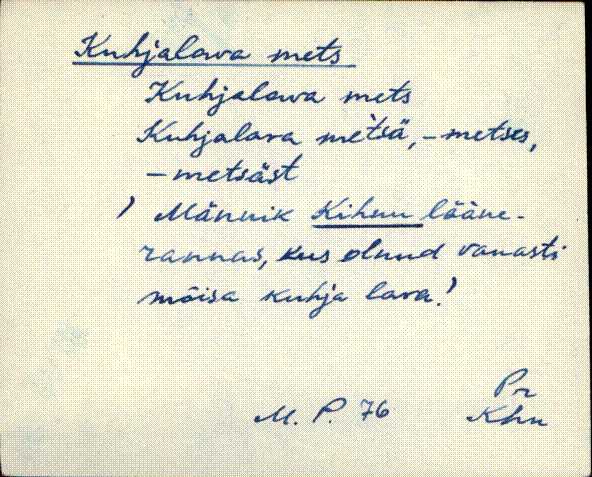 Kuhjalava mets
Kuhjalava mets
Kuhjalava me`tsä, -metses,
-metsäst
) Männik Kihnu lääne-
rannas, kus olnud vanasti
mõisa kuhja lava.)
M. P. 76
Pr
Khn